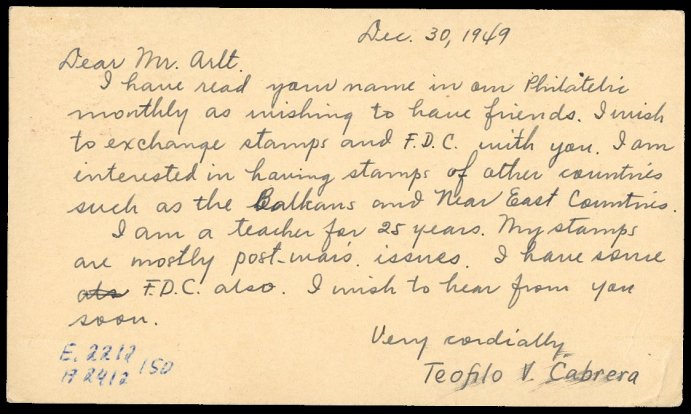 Dec. 30, 1949
Dear Mr. Arlt.
I have read your name in our Philatelic
monthly as wishing to have friends. I wish
to exchange stamps and F.D.C. with you. I am
interested in having stamps of other countries
such as the Balkans and Near East Countries.
I am a teacher for 25 years. My stamps
are mostly post-war's issues. I have some
F.D.C. also. I wish to hear from you
soon.
Very cordially
Teofilo V. Cabrera
E. 2212
A 2412 150